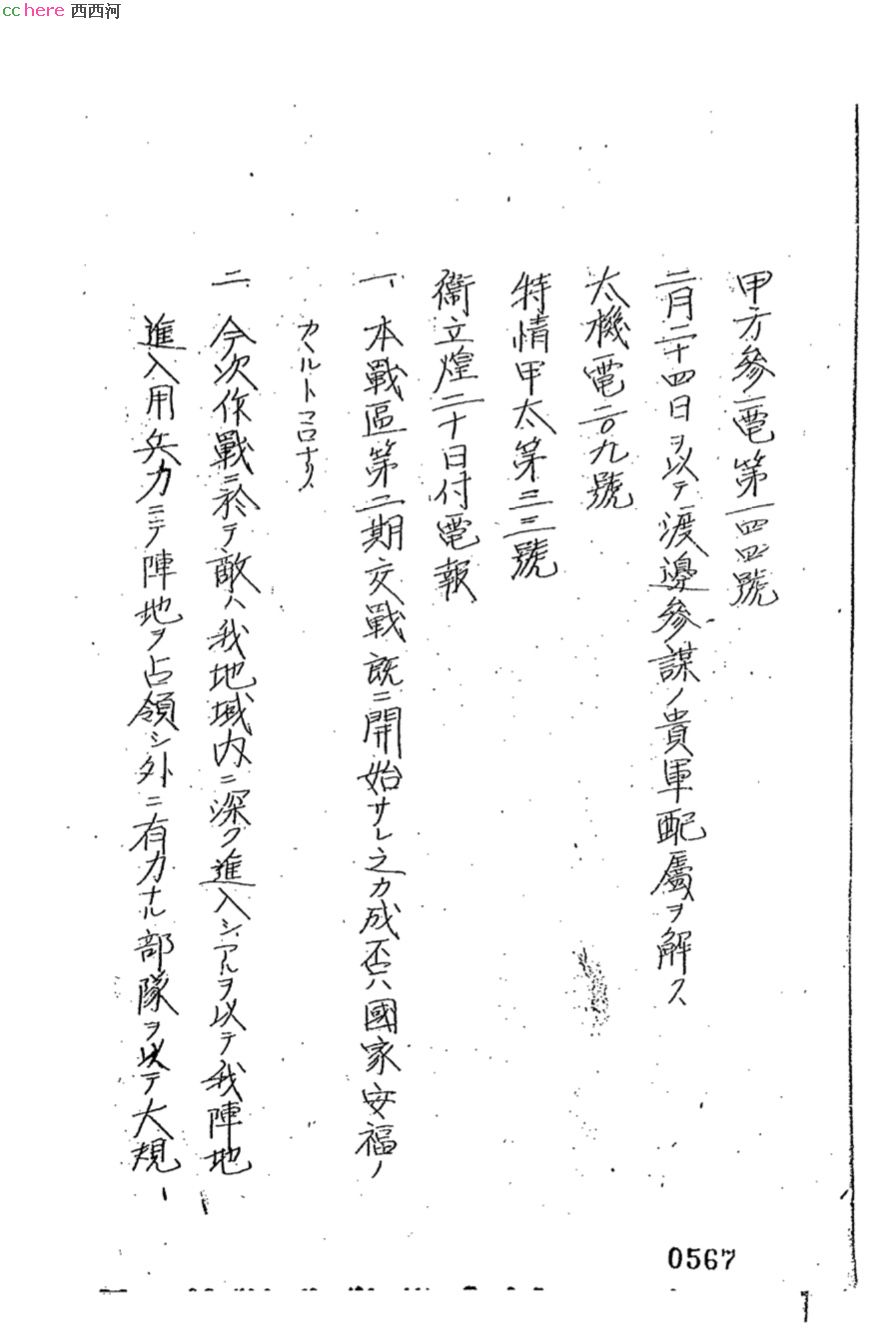 cchere 西西河
甲方參電第一四四號
二月二十四日ヲ以テ渡邊參謀ノ貴軍配屬ヲ解ス
太機電二〇九號
特情甲太第三三號
衞立煌二十日付電報
一、本戰區第二期交戰既ニ開始サレ之カ成否ハ國家安福ノ
カヽルトコロナリ
二、今次作戰ニ於テ敵ハ我地域內ニ深ク進入シアルヲ以テ我陣地
進入用兵力ニテ陣地ヲ占領シ外ニ有力ナル部隊ヲ以テ大規
0567